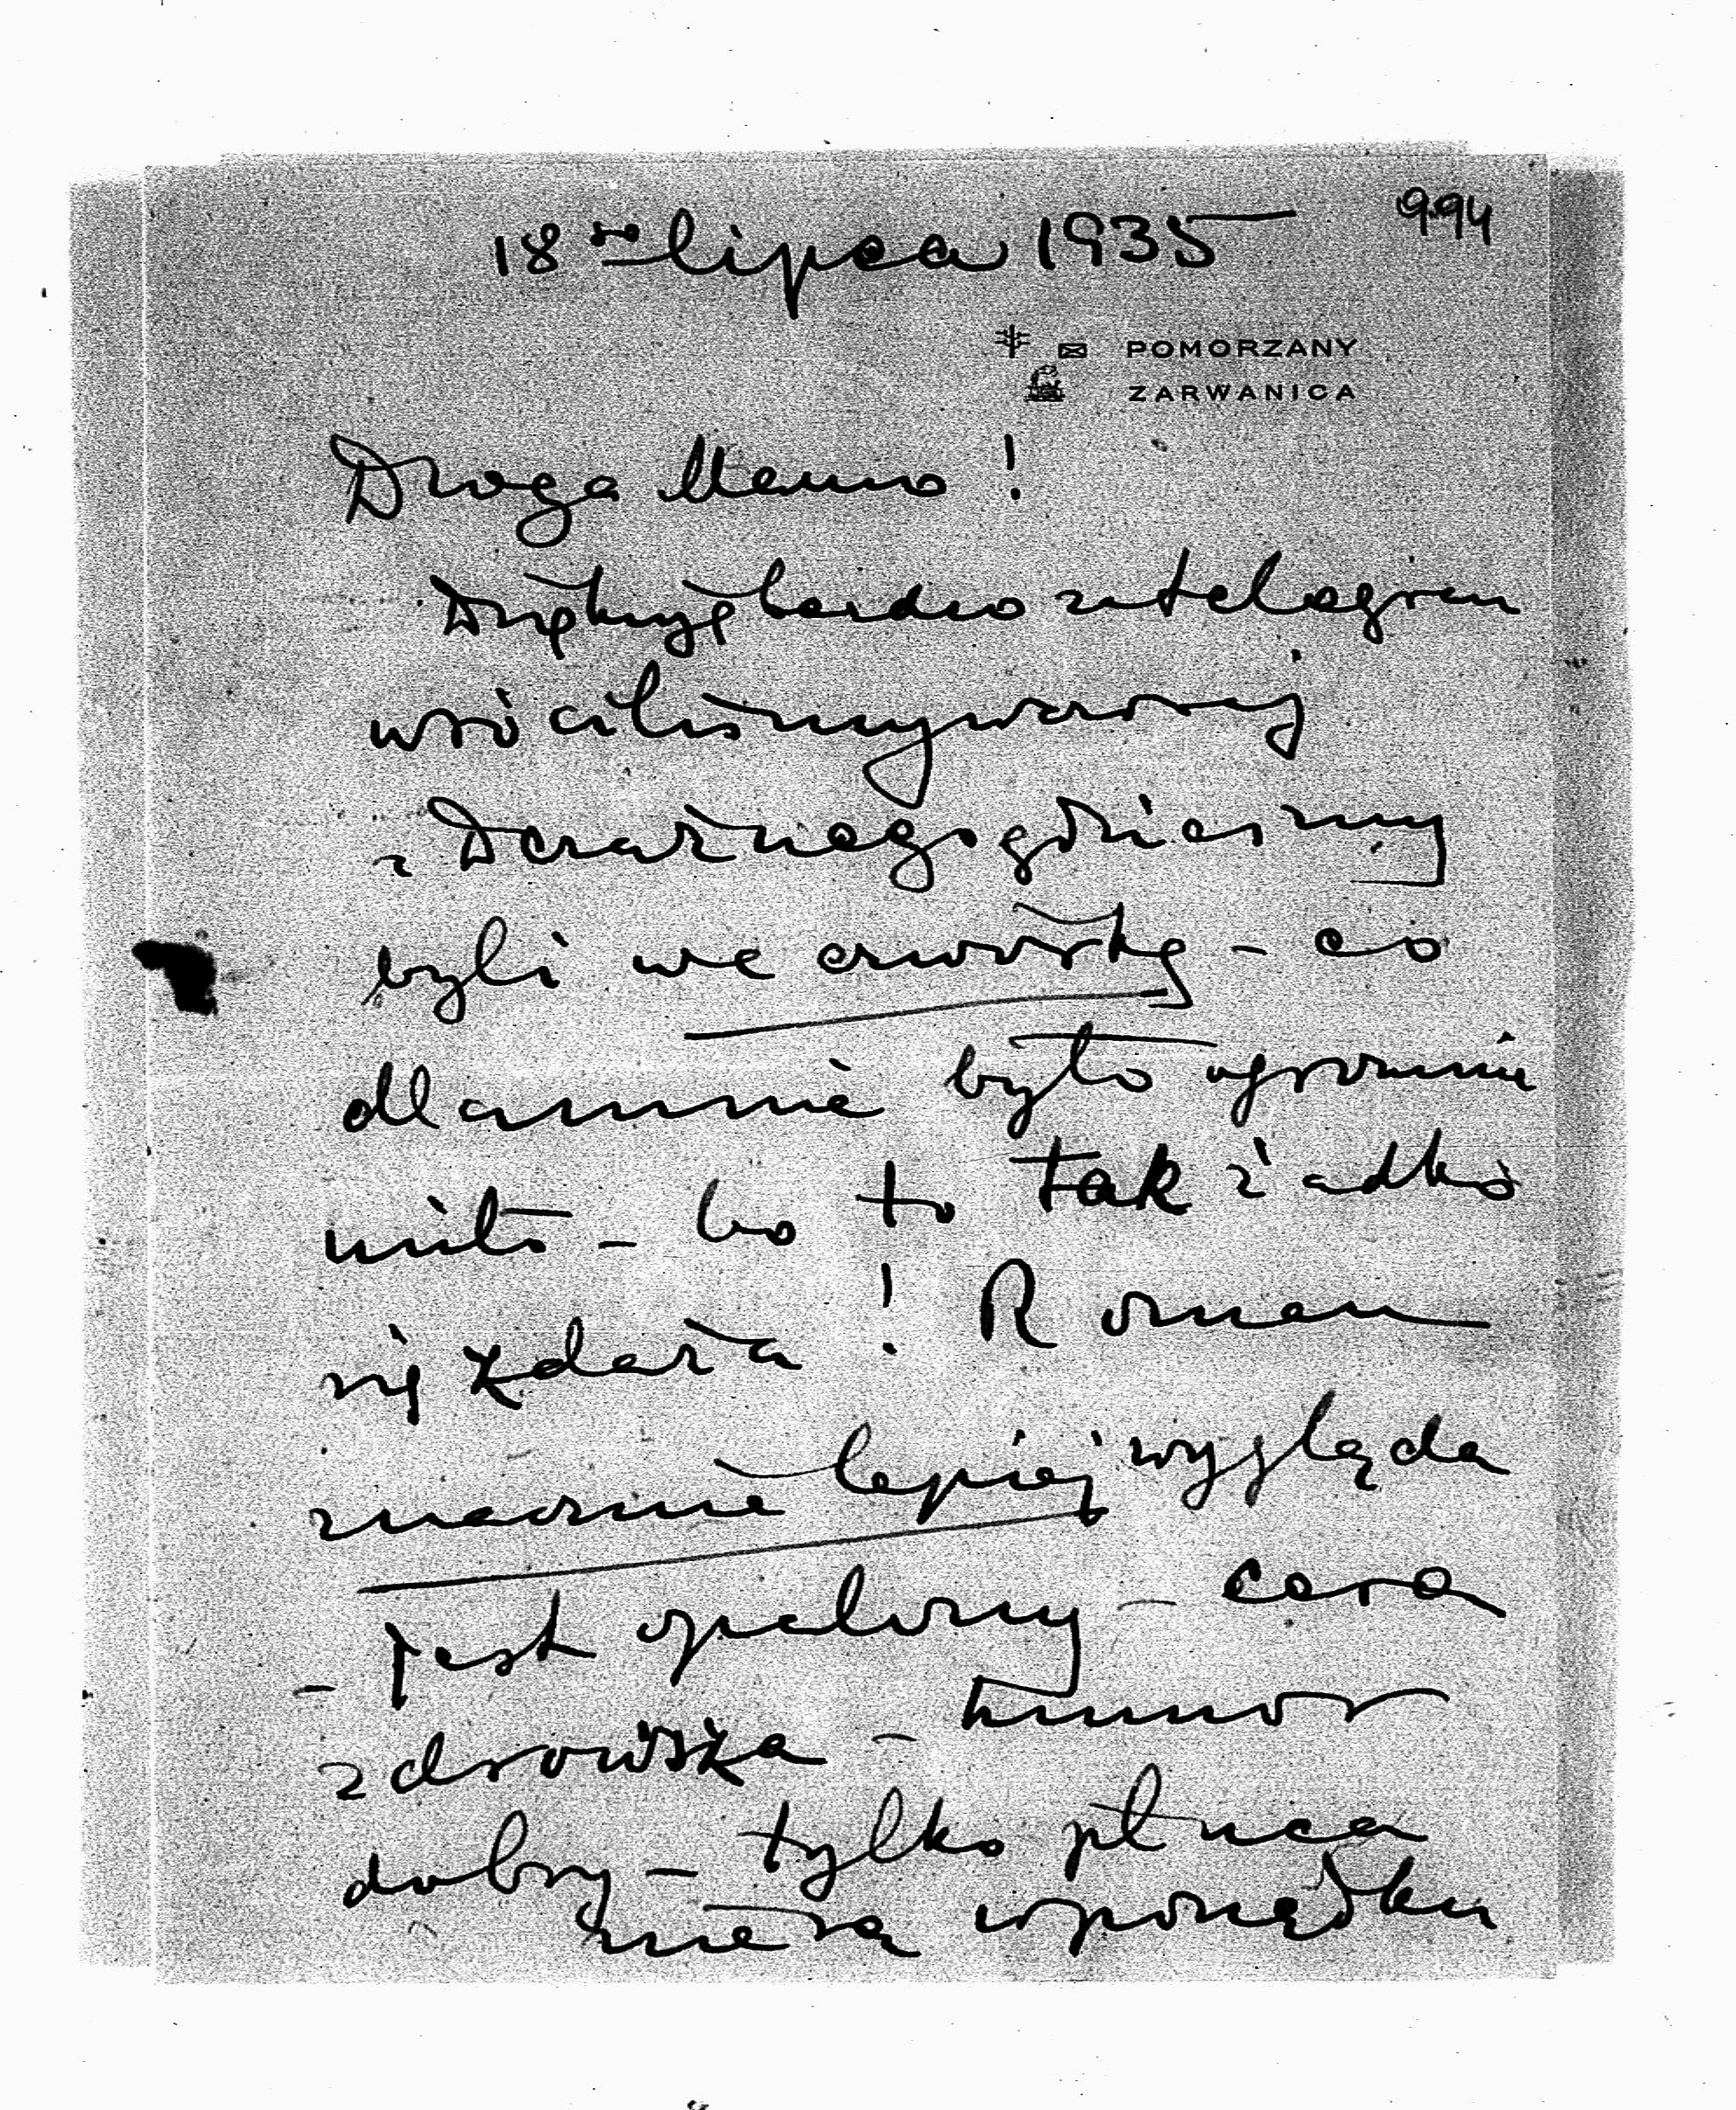 18go lipca 1935
994
POMORZANY
ZARWANICA
Droga Mamo!
Dziękuję bardzo za telegram
wróciliśmy wczoraj
z Deraźnego gdzieśmy
byli we czwórkę - co
dla mnie było ogromnie
miło - bo to tak żadko
się zdaża! Roman
znacznie lepiej wygląda
- jest opalony - cera
zdrowsza - humor
dobry - tylko płuca
nie są w porządku